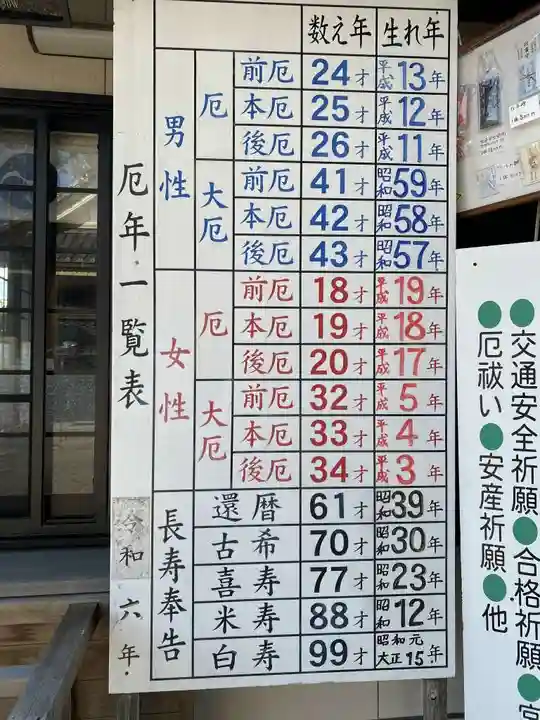 厄年・一覧表
令和六年・
数え年 生れ年
男性
厄
前厄 24才 平成13年
本厄 25才 平成12年
後厄 26才 平成11年
大厄
前厄 41才 昭和59年
本厄 42才 昭和58年
後厄 43才 昭和57年
女性
厄
前厄 18才 平成19年
本厄 19才 平成18年
後厄 20才 平成17年
大厄
前厄 32才 平成5年
本厄 33才 平成4年
後厄 34才 平成3年
長寿奉告
還暦 61才 昭和39年
古希 70才 昭和30年
喜寿 77才 昭和23年
米寿 88才 昭和12年
白寿 99才 昭和元 大正15年
●交通安全祈願●合格祈願●宮
●厄祓い●安産祈願●他